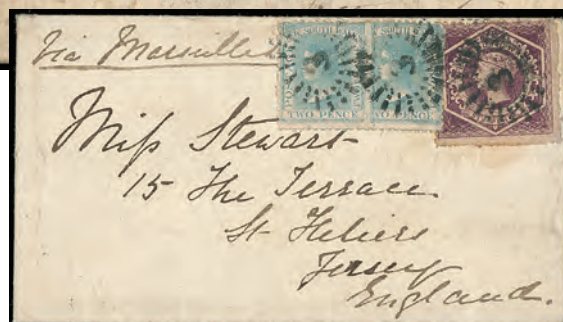 Via Marseilles
TWO PENCE
TWO PENCE
Miss Stewart
15 The Terrace
St Heliers
Jersey
England.